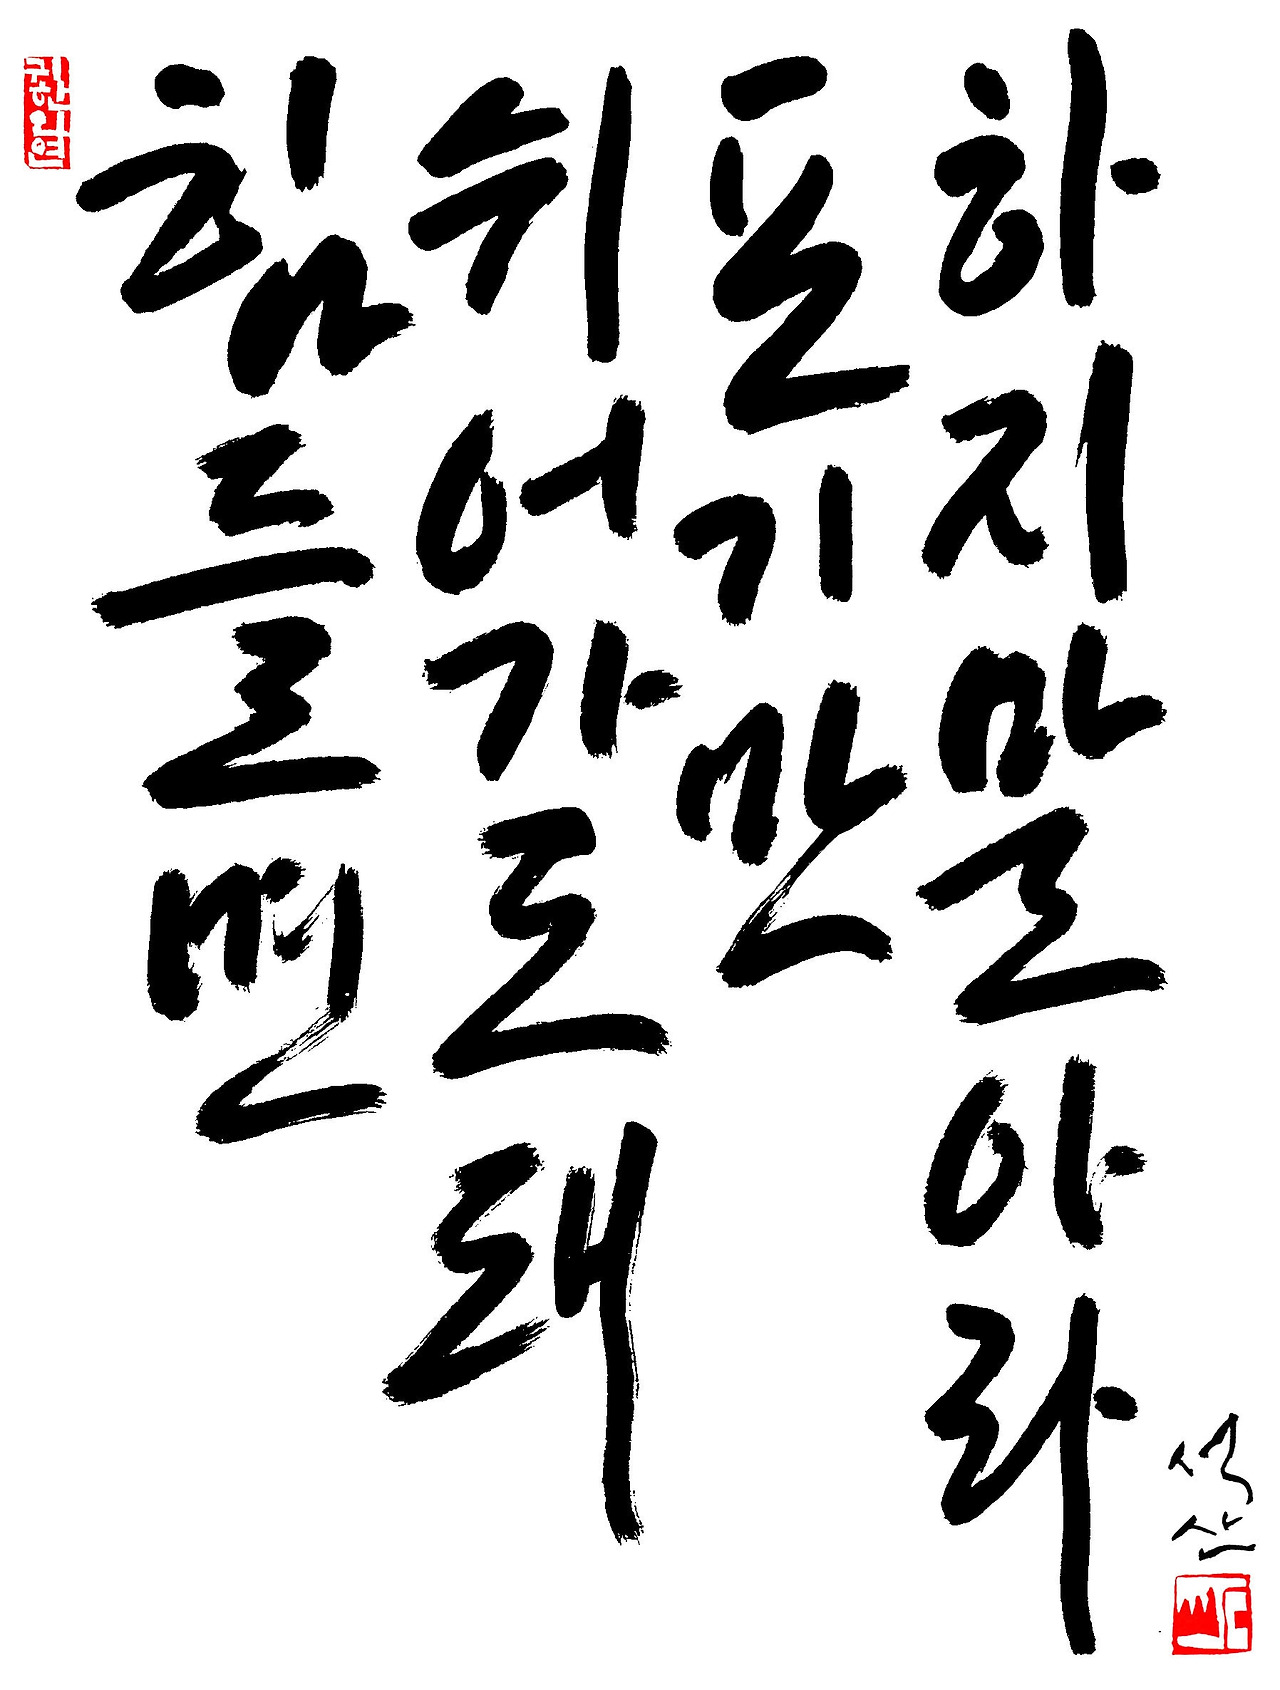 힘들면
쉬어가도 돼
포기만
하지말아라
석산